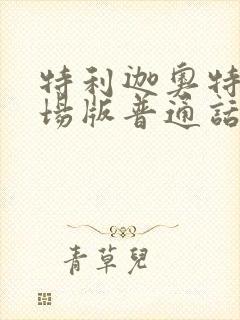 特利迦奥特
场版普通话
青草兒